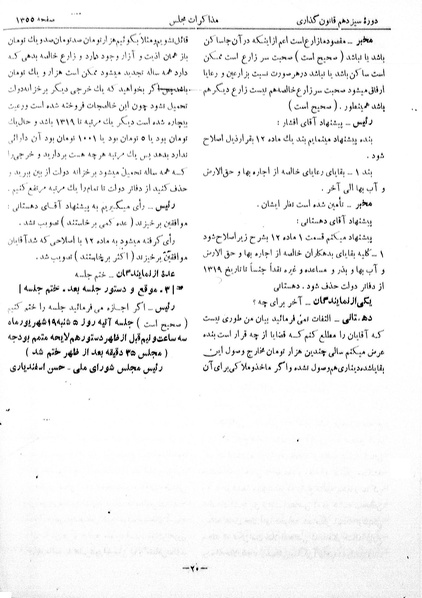 دورهٔ سیزدهم قانون گذاری
مذاکرات مجلس
صفحه ۱۳۵۵
مخبر - مقصود مزارع است اعم از اینکه در آن جا ساکن
باشد یا نباشد (صحیح است) صحبت سر زارع است ممکن
است ساکن باشد یا نباشد در هر صورت نسبت بزارعین و رعایا
ارفاق میشود صحبت سر زارع خالصه هم نیست زارع دیگر هم
باشد همینطور . (صحیح است)
رئیس - پیشنهاد آقای افشار :
بنده پیشنهاد مینمایم بند یك ماده ۱۲ بقرار ذیل اصلاح
شود .
بند ۱ - بقایای رعایای خالصه از اجاره بها و حق الارض
و آب بها الی آخر .
مخبر - تأمین شده است نظر ایشان .
رئیس - پیشنهاد آقای دهستانی :
پیشنهاد میکنم قسمت ۱ ماده ۱۲ بشرح زیر اصلاح شود
۱ - کلیه بقایای بدهکاران خالصه از اجاره بها و حق الارض
و آب بها و بذر و مساعده و غیره نقداً جنساً تا تاریخ ۱۳۱۹
از دفاتر دولت حذف شود . دهستانی
یکی از نمایندگان - آخر برای چه ؟
دهستانی - التفات نمی فرمائید بیان من طوری نیست
که آقایان را مطلع کنم که قضایا از چه قرار است بنده
عرض میکنم سالی چندین هزار تومان مخارج وصول این
بقایا شده دیناری هم وصول نشده و اگر مأخذ و ملاکی برای آن
قائل نشویم مثلا بگوئیم هزار تومان صد تومان صد و یك تومان
باز همان اذیت و آزار وجود دارد و زارع خالصه بدهی که
همه ساله تجدید میشود ممکن است هزار و یك تومان
باشد پس اگر بخواهید که یك خرجی دیگر بر خزانه دولت
تحمیل نشود چون این خالصجات فروخته شده است و رعیت
بیچاره شده است دیگر یك مرتبه تا ۱۳۱۹ باشد و حال یك
تومان بود یا ۵ تومان بود یا ۱۰۰۱ تومان بود آن دارائی
ندارد بدهد پس یك مرتبه هر چه هست بردارید و خرجی را
که همه ساله تحمیل میشود بر خزانه دولت از بین ببرید و
حذف کنید از دفاتر دولت تا تمام را یك مرتبه مرتفع کنیم .
رئیس - رأی میگیریم به پیشنهاد آقای دهستانی :
موافقین برخیزند (عده کمی برخاستند) تصویب نشد .
رأی گرفته میشود به ماده ۱۲ با اصلاحی که شد آقایان
موافقین برخیزند (اکثر برخاستند) تصویب شد .
عده از نمایندگان - ختم جلسه
[۳ - موقع و دستور جلسه بعد - ختم جلسه]
رئیس - اگر اجازه می فرمائید جلسه را ختم کنیم
(صحیح است) جلسه آتیه روز ۵ شنبه ۱۹ شهریور ماه
سه ساعت و نیم قبل از ظهر دستور هم لایحه متمم بودجه
(مجلس ۳۵ دقیقه بعد از ظهر ختم شد)
رئیس مجلس شورای ملی - حسن اسفندیاری
- ۲۰ -